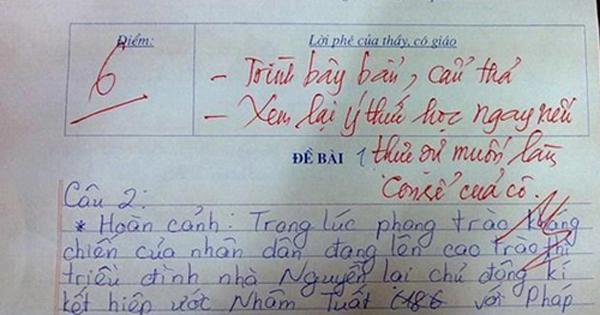 Điểm:
Lời phê của thầy, cô giáo
6
- Trình bày bẩn, cẩu thả
- Xem lại ý thức học ngay nếu
thực sự muốn làm
"con rể" của cô.
ĐỀ BÀI
Câu 2:
* Hoàn cảnh: Trong lúc phong trào kháng
chiến của nhân dân đang lên cao trào thì
triều đình nhà Nguyễn lại chủ động kí
kết hiệp ước Nhâm Tuất với Pháp